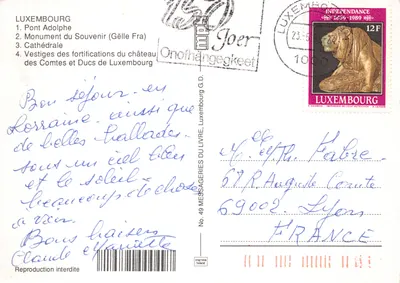 LUXEMBOURG
1. Pont Adolphe
2. Monument du Souvenir (Gëlle Fra)
3. Cathédrale
4. Vestiges des fortifications du château
des Comtes et Ducs de Luxembourg
150
Joer
Onofhängegkeet
LUXEMBOURG
INDEPENDANCE
1839 1989
12F
LUXEMBOURG
Bon séjour en
Lorraine ainsi que
de belles ballades
sous un ciel bleu
et le soleil
beaucoup de choses
à voir.
Bons baisers
Claude
Reproduction interdite
No. 49 MESSAGERIES DU LIVRE, Luxembourg G.D.
Fabre
R. Auguste Comte
69002 Lyon
FRANCE